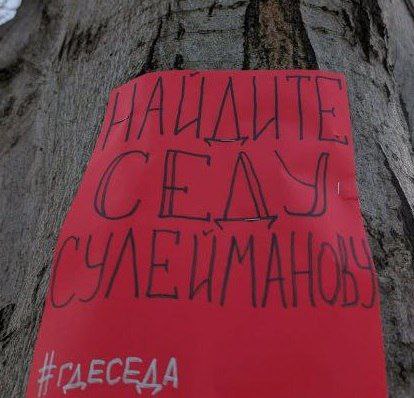 НАЙДИТЕ
СЕДУ
СУЛЕЙМАНОВУ
#ГДЕСЕДА